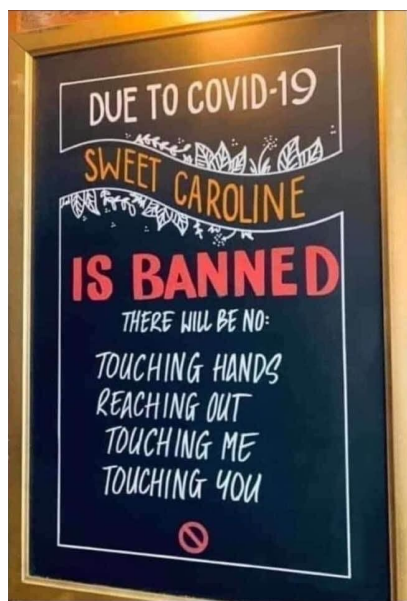 DUE TO COVID-19
SWEET CAROLINE
IS BANNED
THERE WILL BE NO:
TOUCHING HANDS
REACHING OUT
TOUCHING ME
TOUCHING YOU